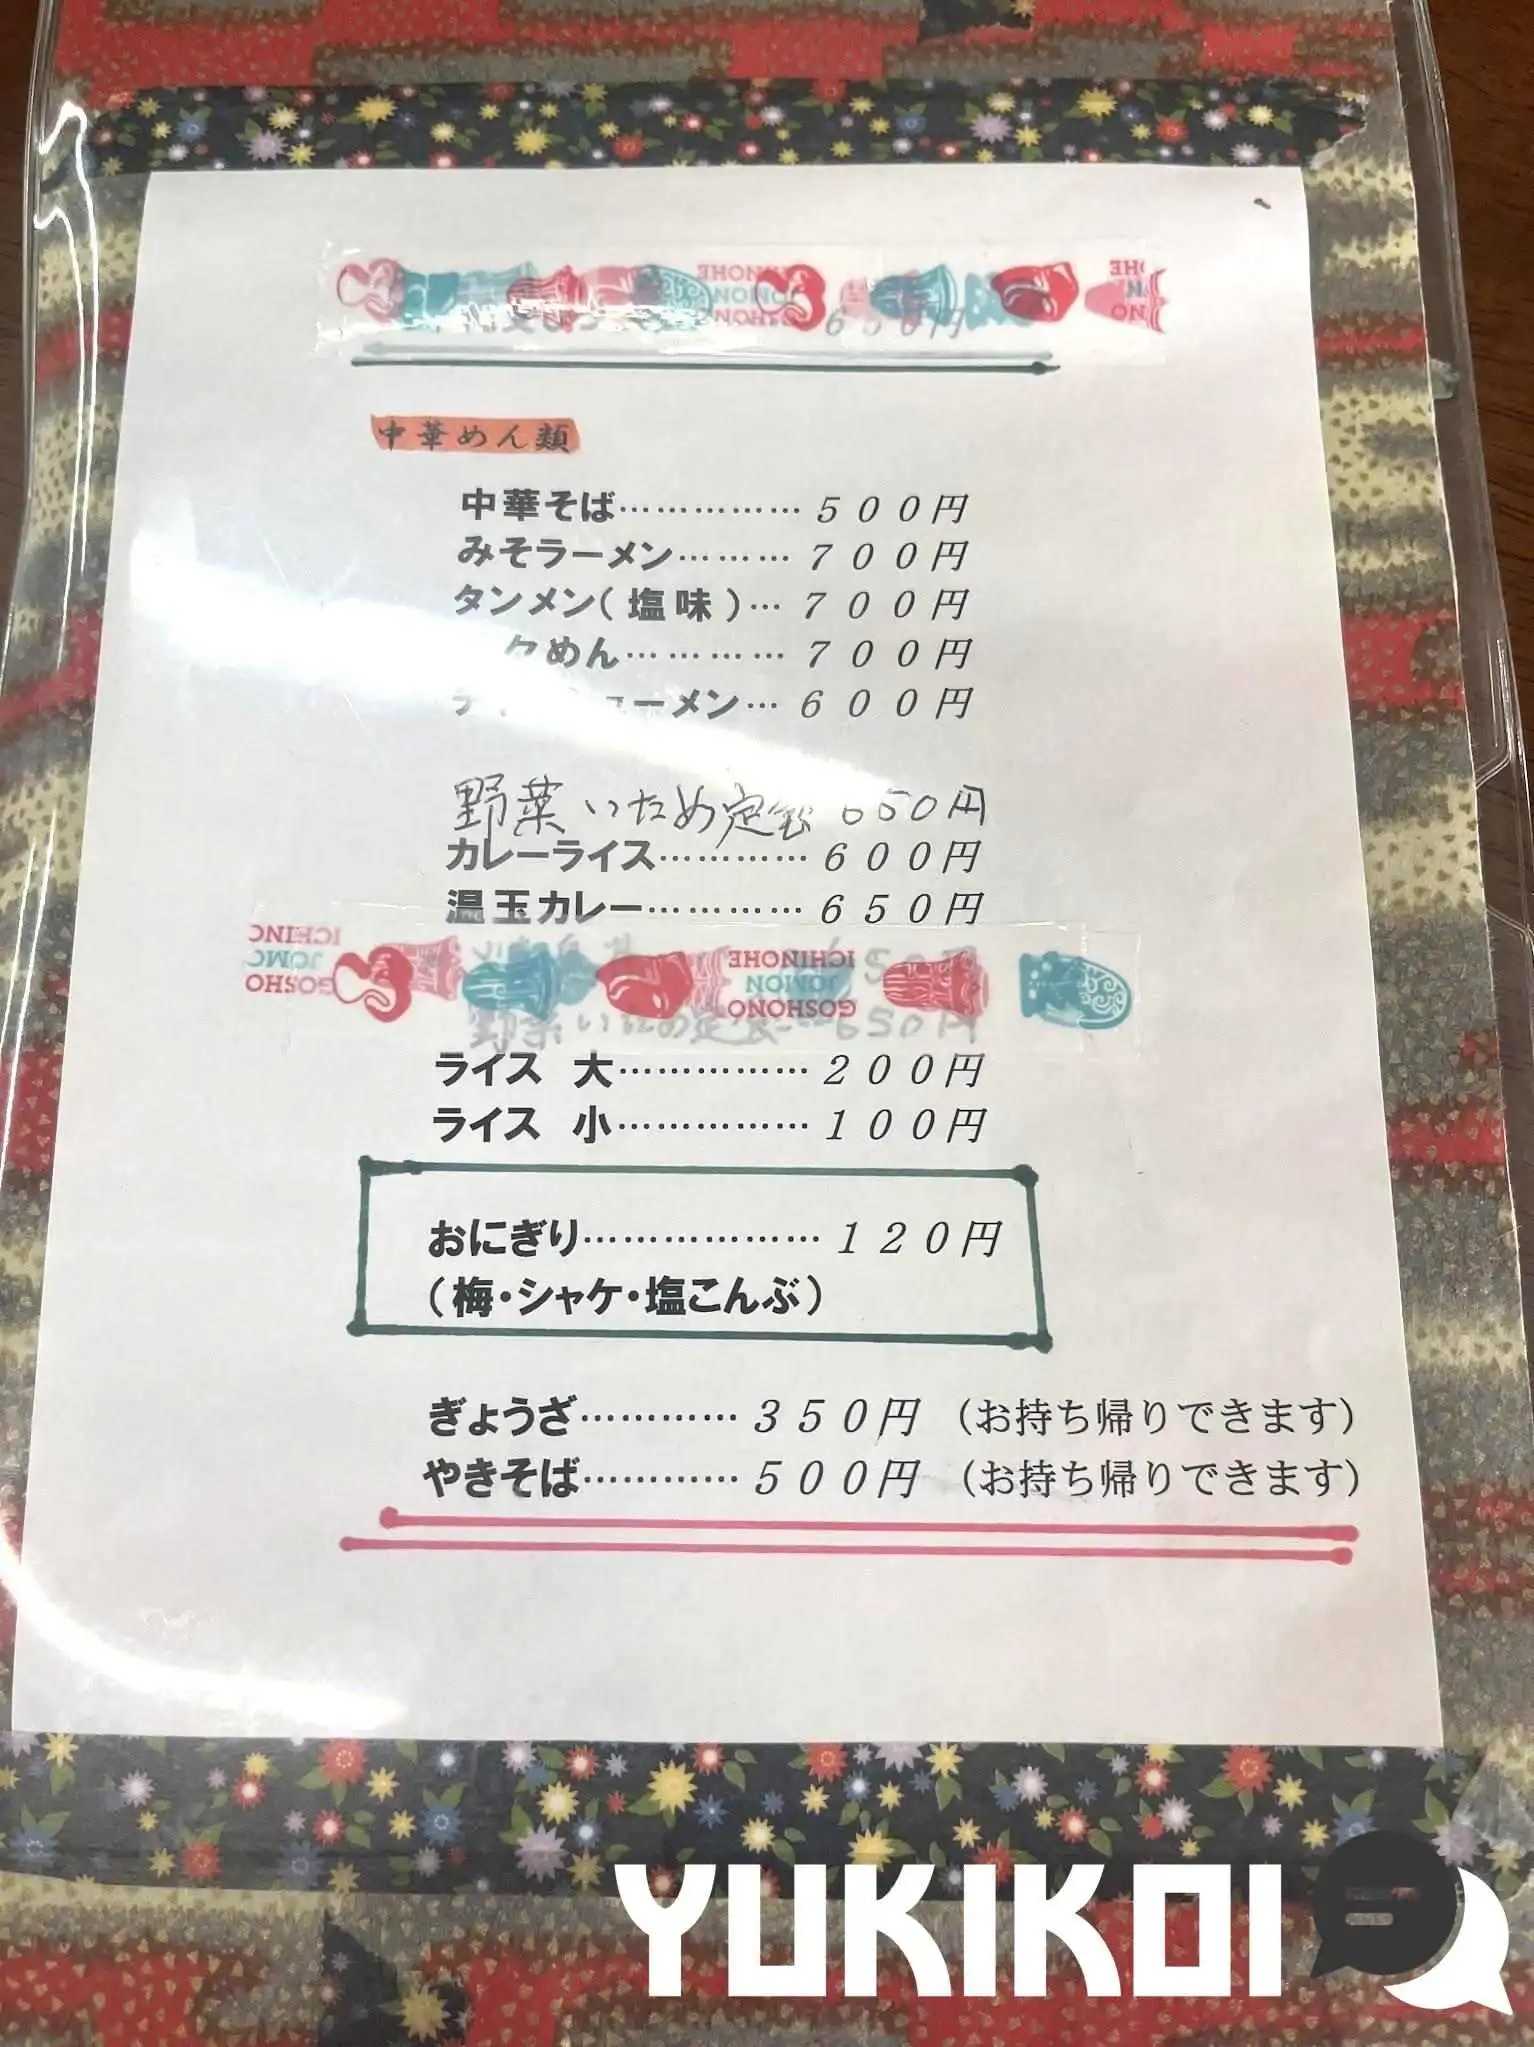 ICHINOHE
JOMON
GOSHONO
650円
中華めん類
中華そば……………500円
みそラーメン………700円
タンメン(塩味)…700円
めん…………700円
ーメン…600円
野菜いため定食 650円
カレーライス…………600円
温玉カレー…………650円
ICHINOHE
JOMON
GOSHONO
野菜いため定食…650円
ライス 大……………200円
ライス 小……………100円
おにぎり………………120円
(梅・シャケ・塩こんぶ)
ぎょうざ…………350円 (お持ち帰りできます)
やきそば…………500円 (お持ち帰りできます)
YUKIKOI